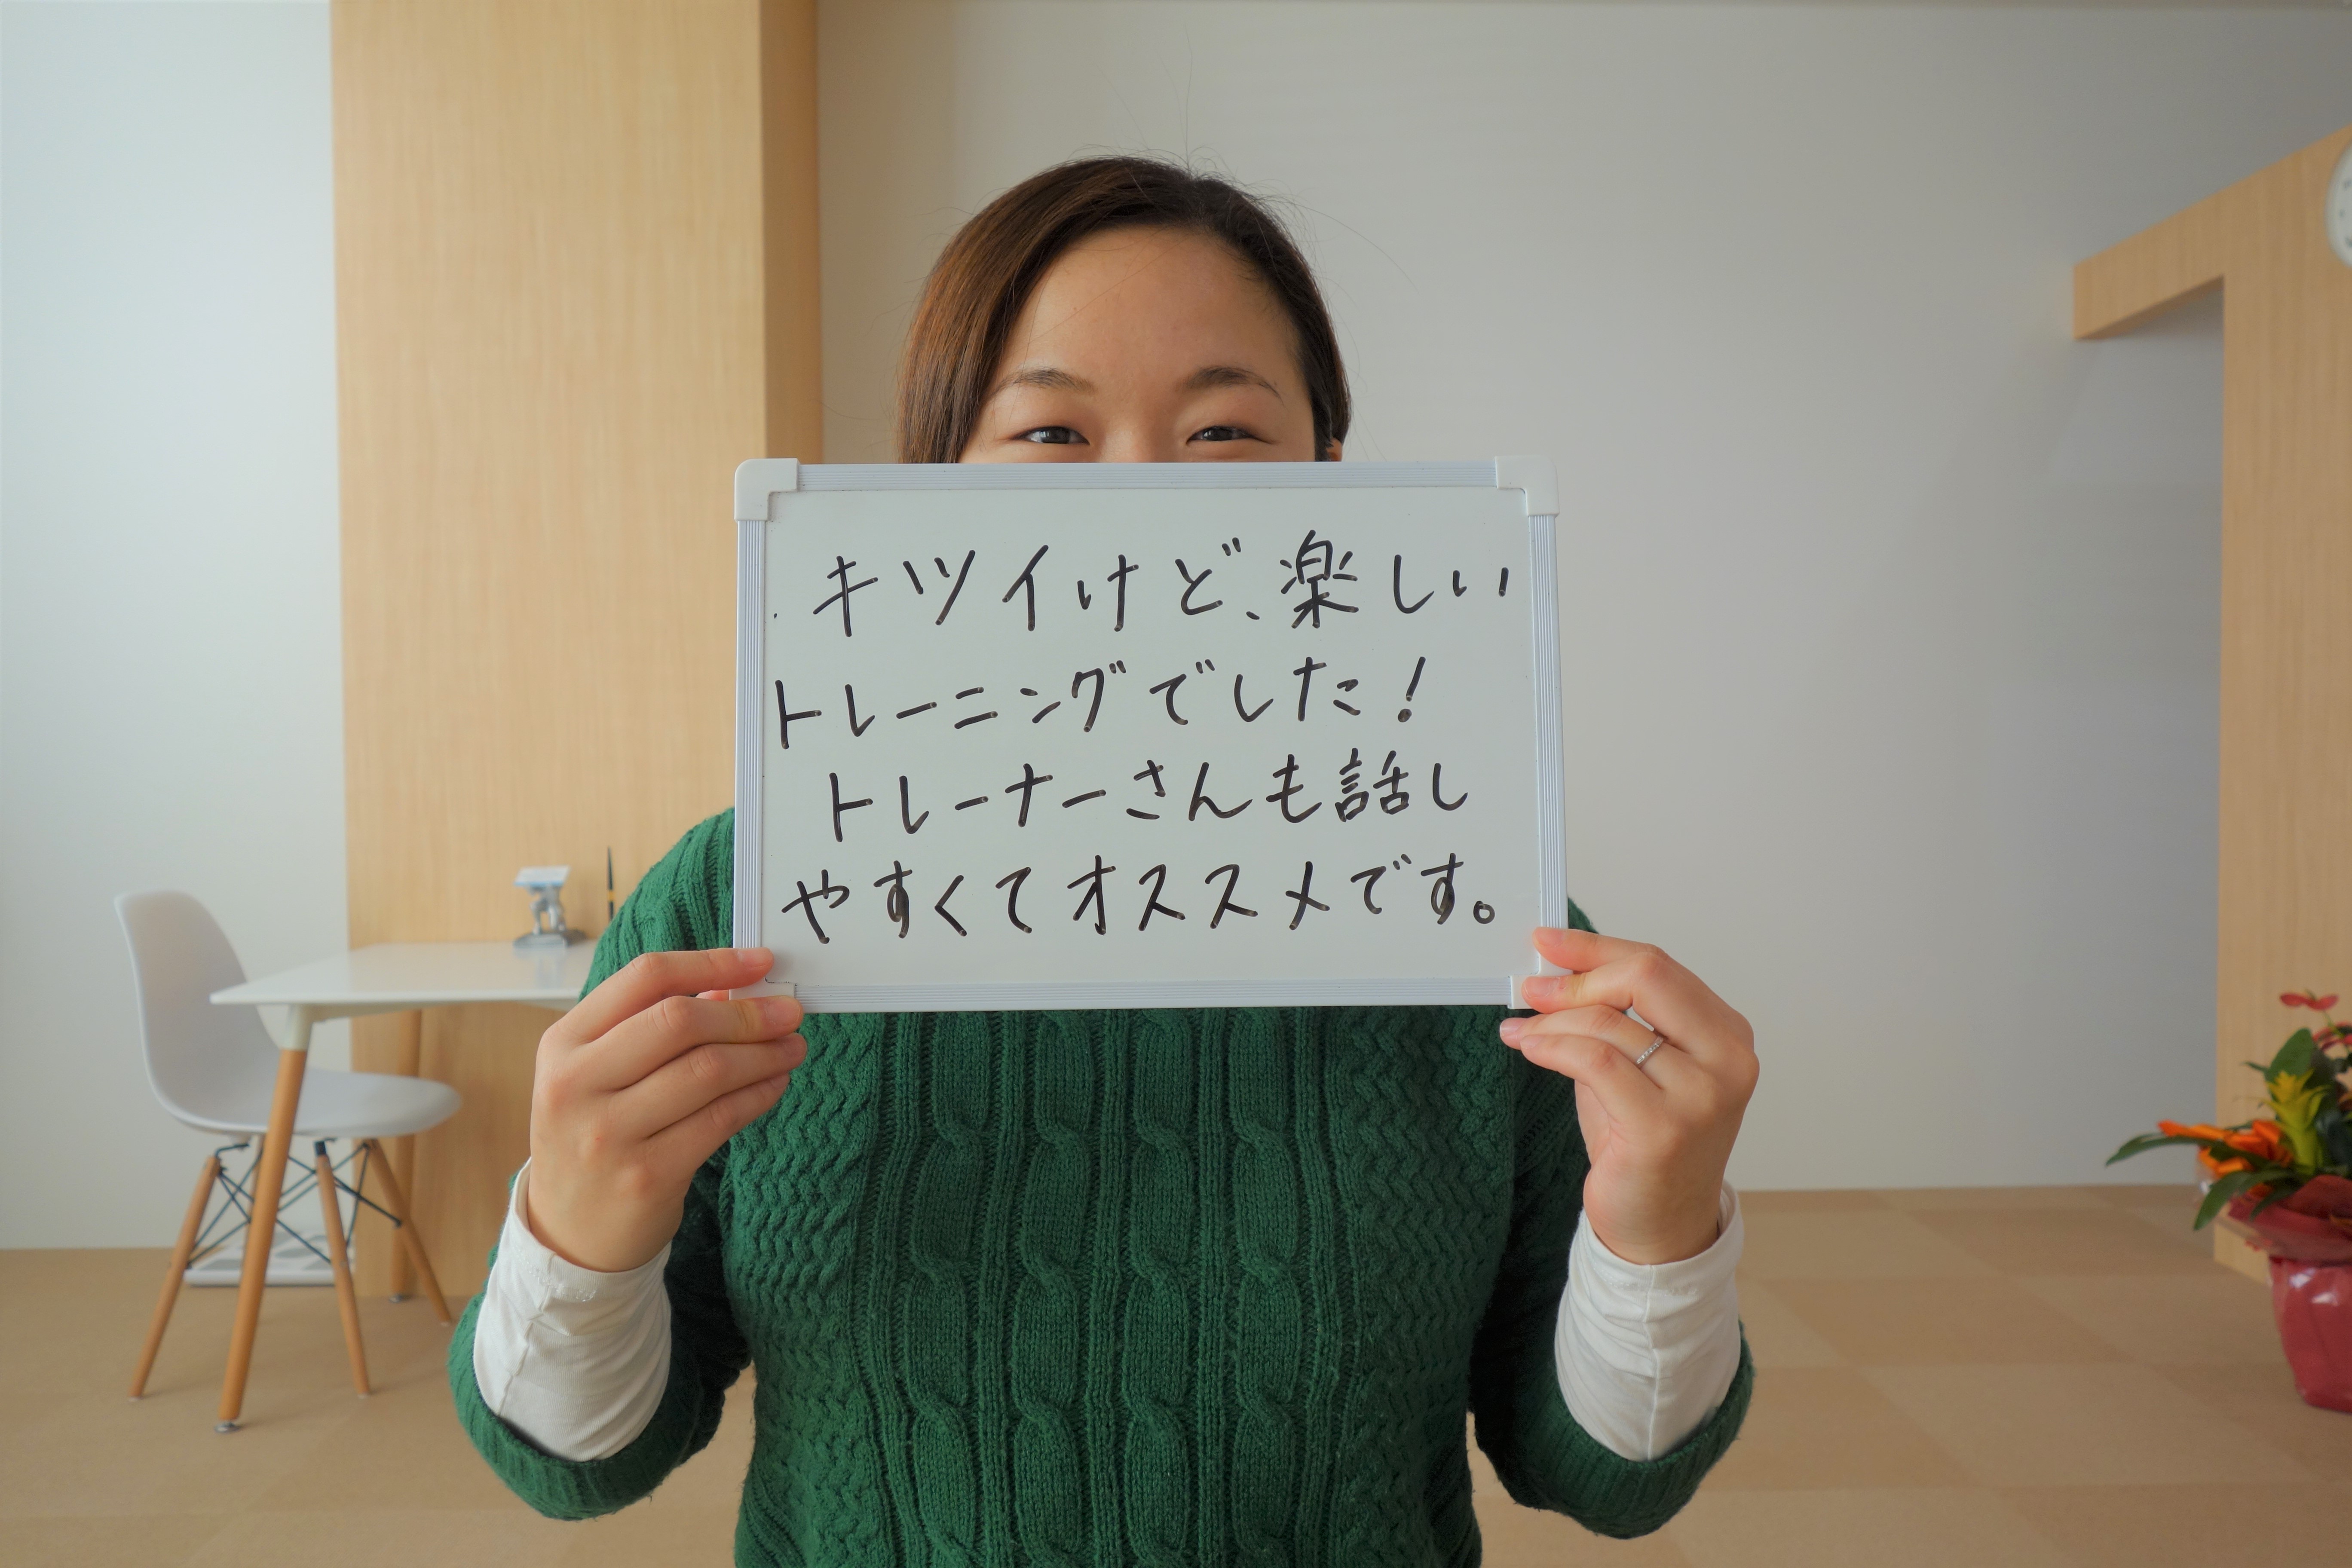 キツイけど、楽しい
トレーニングでした！
トレーナーさんも話し
やすくてオススメです。